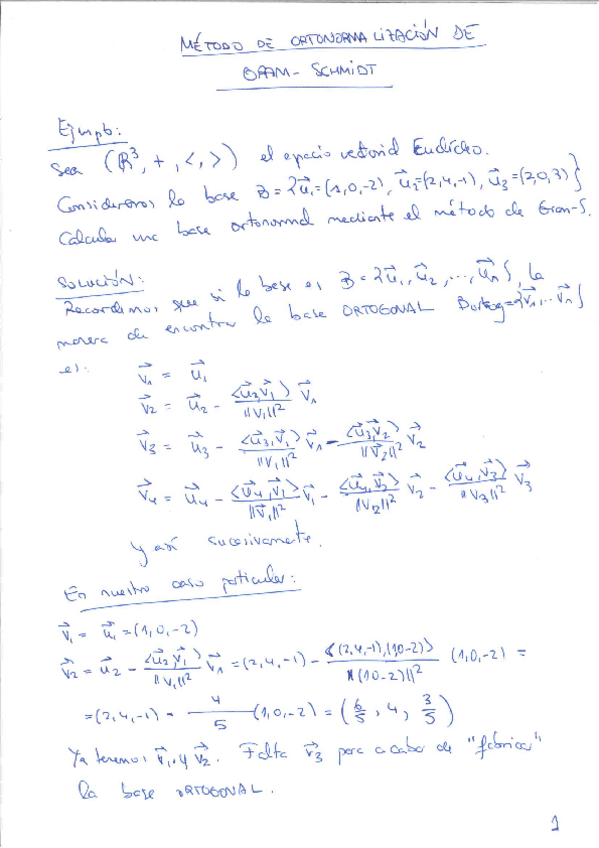 MÉTODO DE ORTONORMALIZACIÓN DE
GRAM-SCHMIDT
Ejemplo:
Sea (ℝ³, +, <,>) el espacio vectorial Euclídeo.
Consideremos la base B = {u⃗₁=(1,0,-2), u⃗₂=(2,4,-1), u⃗₃=(2,0,3)}
Calcular una base ortonormal mediante el método de Gram-S.
SOLUCIÓN:
Recordemos que si la base es B = {u⃗₁, u⃗₂, ..., u⃗ₙ}, la
manera de encontrar la base ORTOGONAL Bortog={v⃗₁,...v⃗ₙ}
es:
v⃗₁ = u⃗₁
v⃗₂ = u⃗₂ - <u⃗₂,v⃗₁>/||v₁||² v⃗₁
v⃗₃ = u⃗₃ - <u⃗₃,v⃗₁>/||v₁||² v⃗₁ - <u⃗₃,v⃗₂>/||v⃗₂||² v⃗₂
v⃗₄ = u⃗₄ - <u⃗₄,v⃗₁>/||v⃗₁||² v⃗₁ - <u⃗₄,v⃗₂>/||v₂||² v⃗₂ - <u⃗₄,v⃗₃>/||v₃||² v⃗₃
y así sucesivamente.
En nuestro caso particular:
v⃗₁ = u⃗₁ = (1,0,-2)
v⃗₂ = u⃗₂ - <u⃗₂,v⃗₁>/||v₁||² v⃗₁ = (2,4,-1) - <(2,4,-1),(1,0-2)>/||(1,0-2)||² (1,0,-2) =
= (2,4,-1) - 4/5 (1,0,-2) = (6/5, 4, 3/5)
Ya tenemos v⃗₁ y v⃗₂. Falta v⃗₃ para acabar de "fabricar"
la base ORTOGONAL.
1